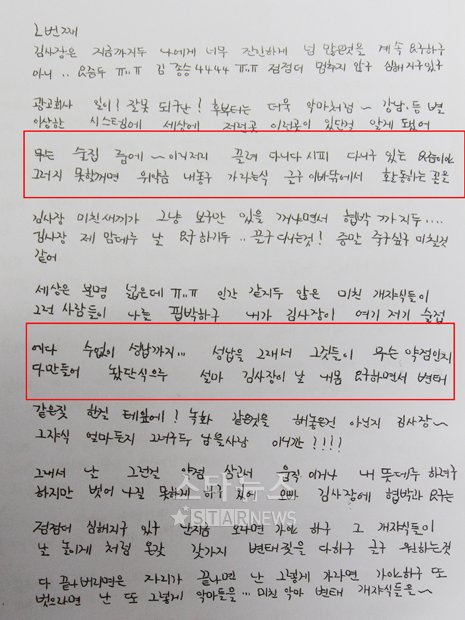 2번째
김사장은 지금까지두 나에게 너무 잔인하게 넘 많은것을 계속 요구하구
아니.. 요즘두 ㅠ.ㅠ 김종승 4444 ㅠ.ㅠ 점점더 멈추지 않구 심해지구있구
광고회사 일이! 잘못 되구난! 후부터는 더욱 악마처럼~ 강남.등 별
이상한 시스템에 세상에 저런곳 이런곳이 있단걸 알게 됐어
무슨 술집 류에~ 이거저리 끌려 다니다 시피 다니구 있는 요즘이야
그러지 못할꺼면 위약금 내놓구 가라는식 근구 이바닦에서 활동하는 꼴을
김사장 미친새끼가 그냥 보구만 있을 꺼냐면서 협박 까지두....
김사장 제 맘데루 날 요구하기두.. 끌구 다니는것! 증말 죽구싶구 미칠것
같어
세상은 분명 넓은데 ㅠ.ㅠ 인간 같지두 않은 미친 개쟈식들이
그런 사람들이 나를 핍박하구 내가 김사장이 여기 저기 술접
에다 수없이 성납까지... 성납을 그래서 그것들이 무슨 약점인지
다만들어 놨단식으루 설마 김사장이 날 내몸 요구하면서 변태
같은짓 한걸 테잎에! 녹화 같은것을 해놓은건 아닌지 김사장~
그쟈식 얼마든지 그러구두 남을사남 이니깐!!!!
그래서 난 그런걸 약점 삼고서 움직이거나 내 뜻데루 하려구
하지만 벗어 나질 못하게 하구 있어 오빠 김사장에 협박과 요구는
점점더 심해지구 있구 난지금 오라면 가야하구 그 개쟈식들이
날 놀이게 처럼 온갖 갖가지 변태짓을 다하구 근구 원하는것
다 끝나버리면은 자리가 끝나면 난 그렇게 가라면 가야하구 또
벗으라면 난 또 그렇게 악마들을... 미친 악마 변태 개쟈식들을~
스타뉴스
STARNEWS